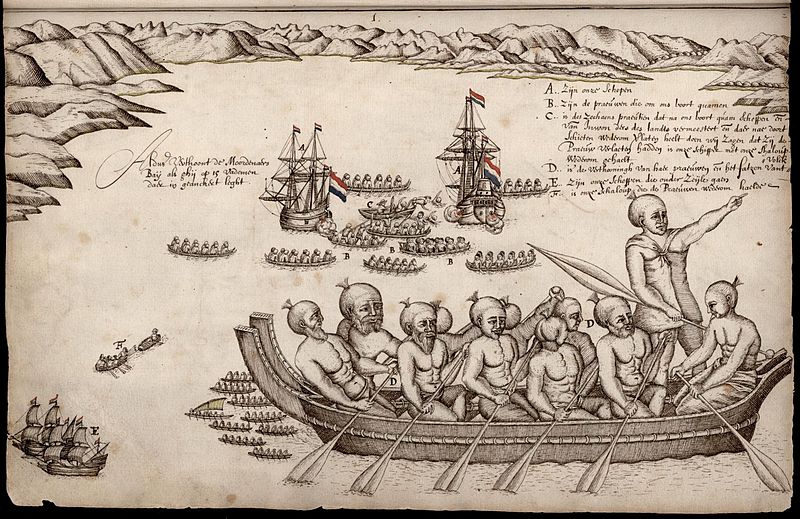 1.
A. Zijn onze Schepen
B. Zijn de praeuwen die om ons boort quamen
C. is des Zeehaens praeutien dat na ons boort quam scheppen en
Van Inwon ders des landts vermeestert en daer nae door
Schieten Wederom Verlaten hielt doen wij Zagen dat Zij de
Praeuw Verlaeten hadden is onze Schipper met onse Chaloup
Wederom gehaelt
D. is de Vertooningh Van hare praeuwen en het fatzon Van t
Volck
E. Zijn onse Schepen die onder Zeijle gaen
F. is onse Schaloup die de Praeuwen wederom haelde
Aldus Verthoont de Moordenaers
Baij als ghij op 15 Vademen
daer in geanckert leght
A
A
C
B
B
B
D
D
F
E